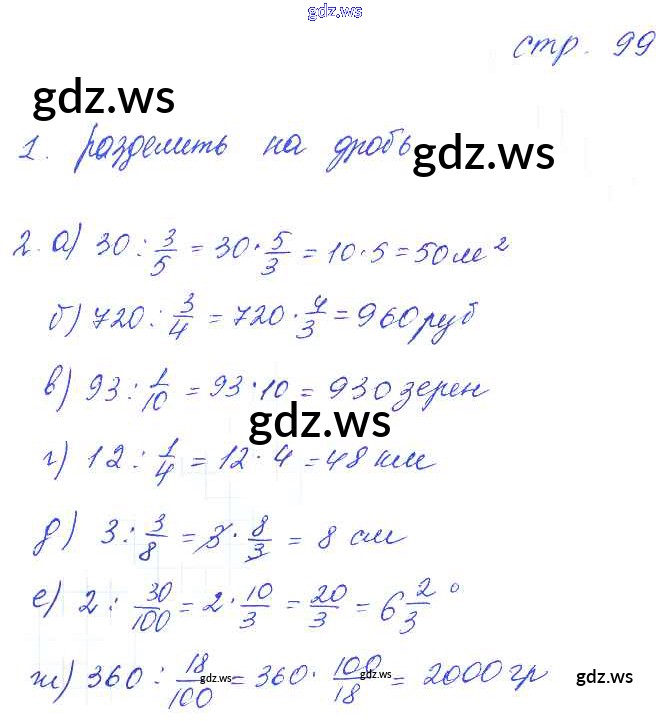 gdz.ws
стр. 99
gdz.ws
1. разделить на дробь
gdz.ws
2. а) 30 : 3/5 = 30 · 5/3 = 10 · 5 = 50 м²
б) 720 : 3/4 = 720 · 4/3 = 960 руб
в) 93 : 1/10 = 93 · 10 = 930 зерен
gdz.ws
г) 12 : 1/4 = 12 · 4 = 48 км
д) 3 : 3/8 = 3 · 8/3 = 8 см
е) 2 : 30/100 = 2 · 10/3 = 20/3 = 6 2/3 °
ж) 360 : 18/100 = 360 · 100/18 = 2000 гр
gdz.ws gdz.ws gdz.ws